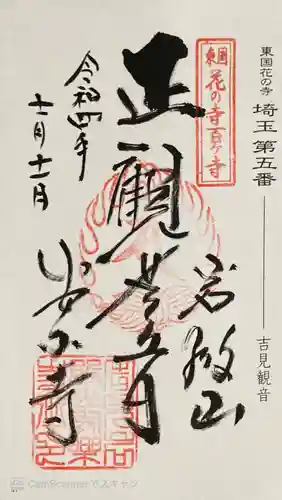 東国花の寺
埼玉 第五番
吉見観音
東国
花の寺百ヶ寺
岩殿山
正観世音
安楽寺
令和四年
十一月十一日
CamScannerでスキャン